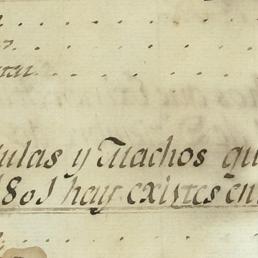 ulas y Machos qu
1801 hay existes en